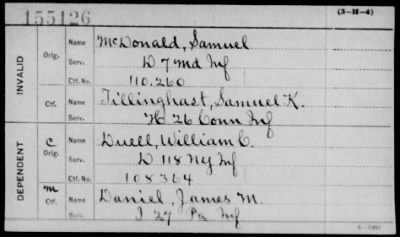 155126
(3-H-4)
INVALID
Orig. Name McDonald, Samuel
Serv. D 7 Md Inf
Ctf. No. 110,260
Ctf. Name Tillinghast, Samuel K.
Serv. H 26 Conn Inf
DEPENDENT
C Orig. Name Duell, William C.
Serv. D 118 NY Inf
Ctf. No. 108364
m Ctf. Name Daniel, James M.
Serv. I 27 Pa Inf